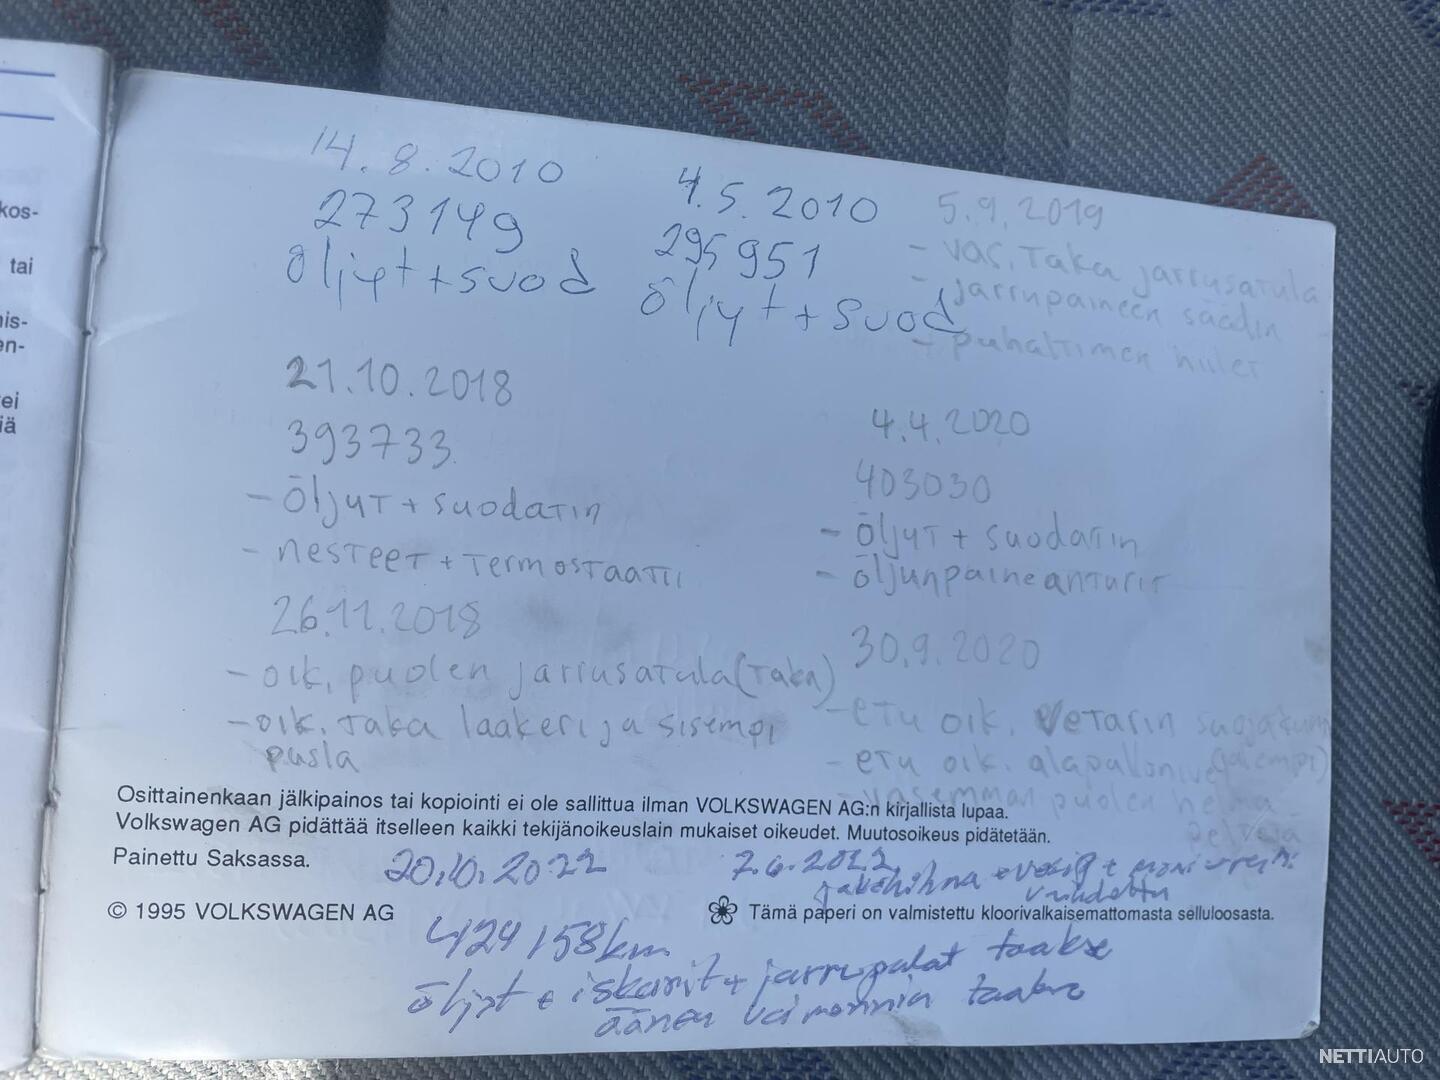 kos-
tai
nis-
en-
ei
iä
14.8.2010
273149
öljyt + suod
4.5.2010
295951
öljyt + suod
5.9.2019
- vas. taka jarrusatula
- jarrupaineen säädin
- puhaltimen hiilet
21.10.2018
393733
- öljyt + suodatin
- nesteet + termostaatti
26.11.2018
- oik. puolen jarrusatula (taka)
- oik. taka laakeri ja sisempi
pusla
4.4.2020
403030
- öljyt + suodatin
- öljynpaineanturit
30.9.2020
- etu oik. vetarin suojakumi
(ulompi)
- etu oik. alapallonivel
- vasemman puolen helma
peltejä
Osittainenkaan jälkipainos tai kopiointi ei ole sallittua ilman VOLKSWAGEN AG:n kirjallista lupaa.
Volkswagen AG pidättää itselleen kaikki tekijänoikeuslain mukaiset oikeudet. Muutosoikeus pidätetään.
Painettu Saksassa.
20.10.2022
7.6.2022
jakohihna + vesip +
vaihdettu
© 1995 VOLKSWAGEN AG
Tämä paperi on valmistettu kloorivalkaisemattomasta selluloosasta.
424158km
öljyt + iskarit + jarrupalat taakse
äänen vaimennin taakse
NETTIAUTO